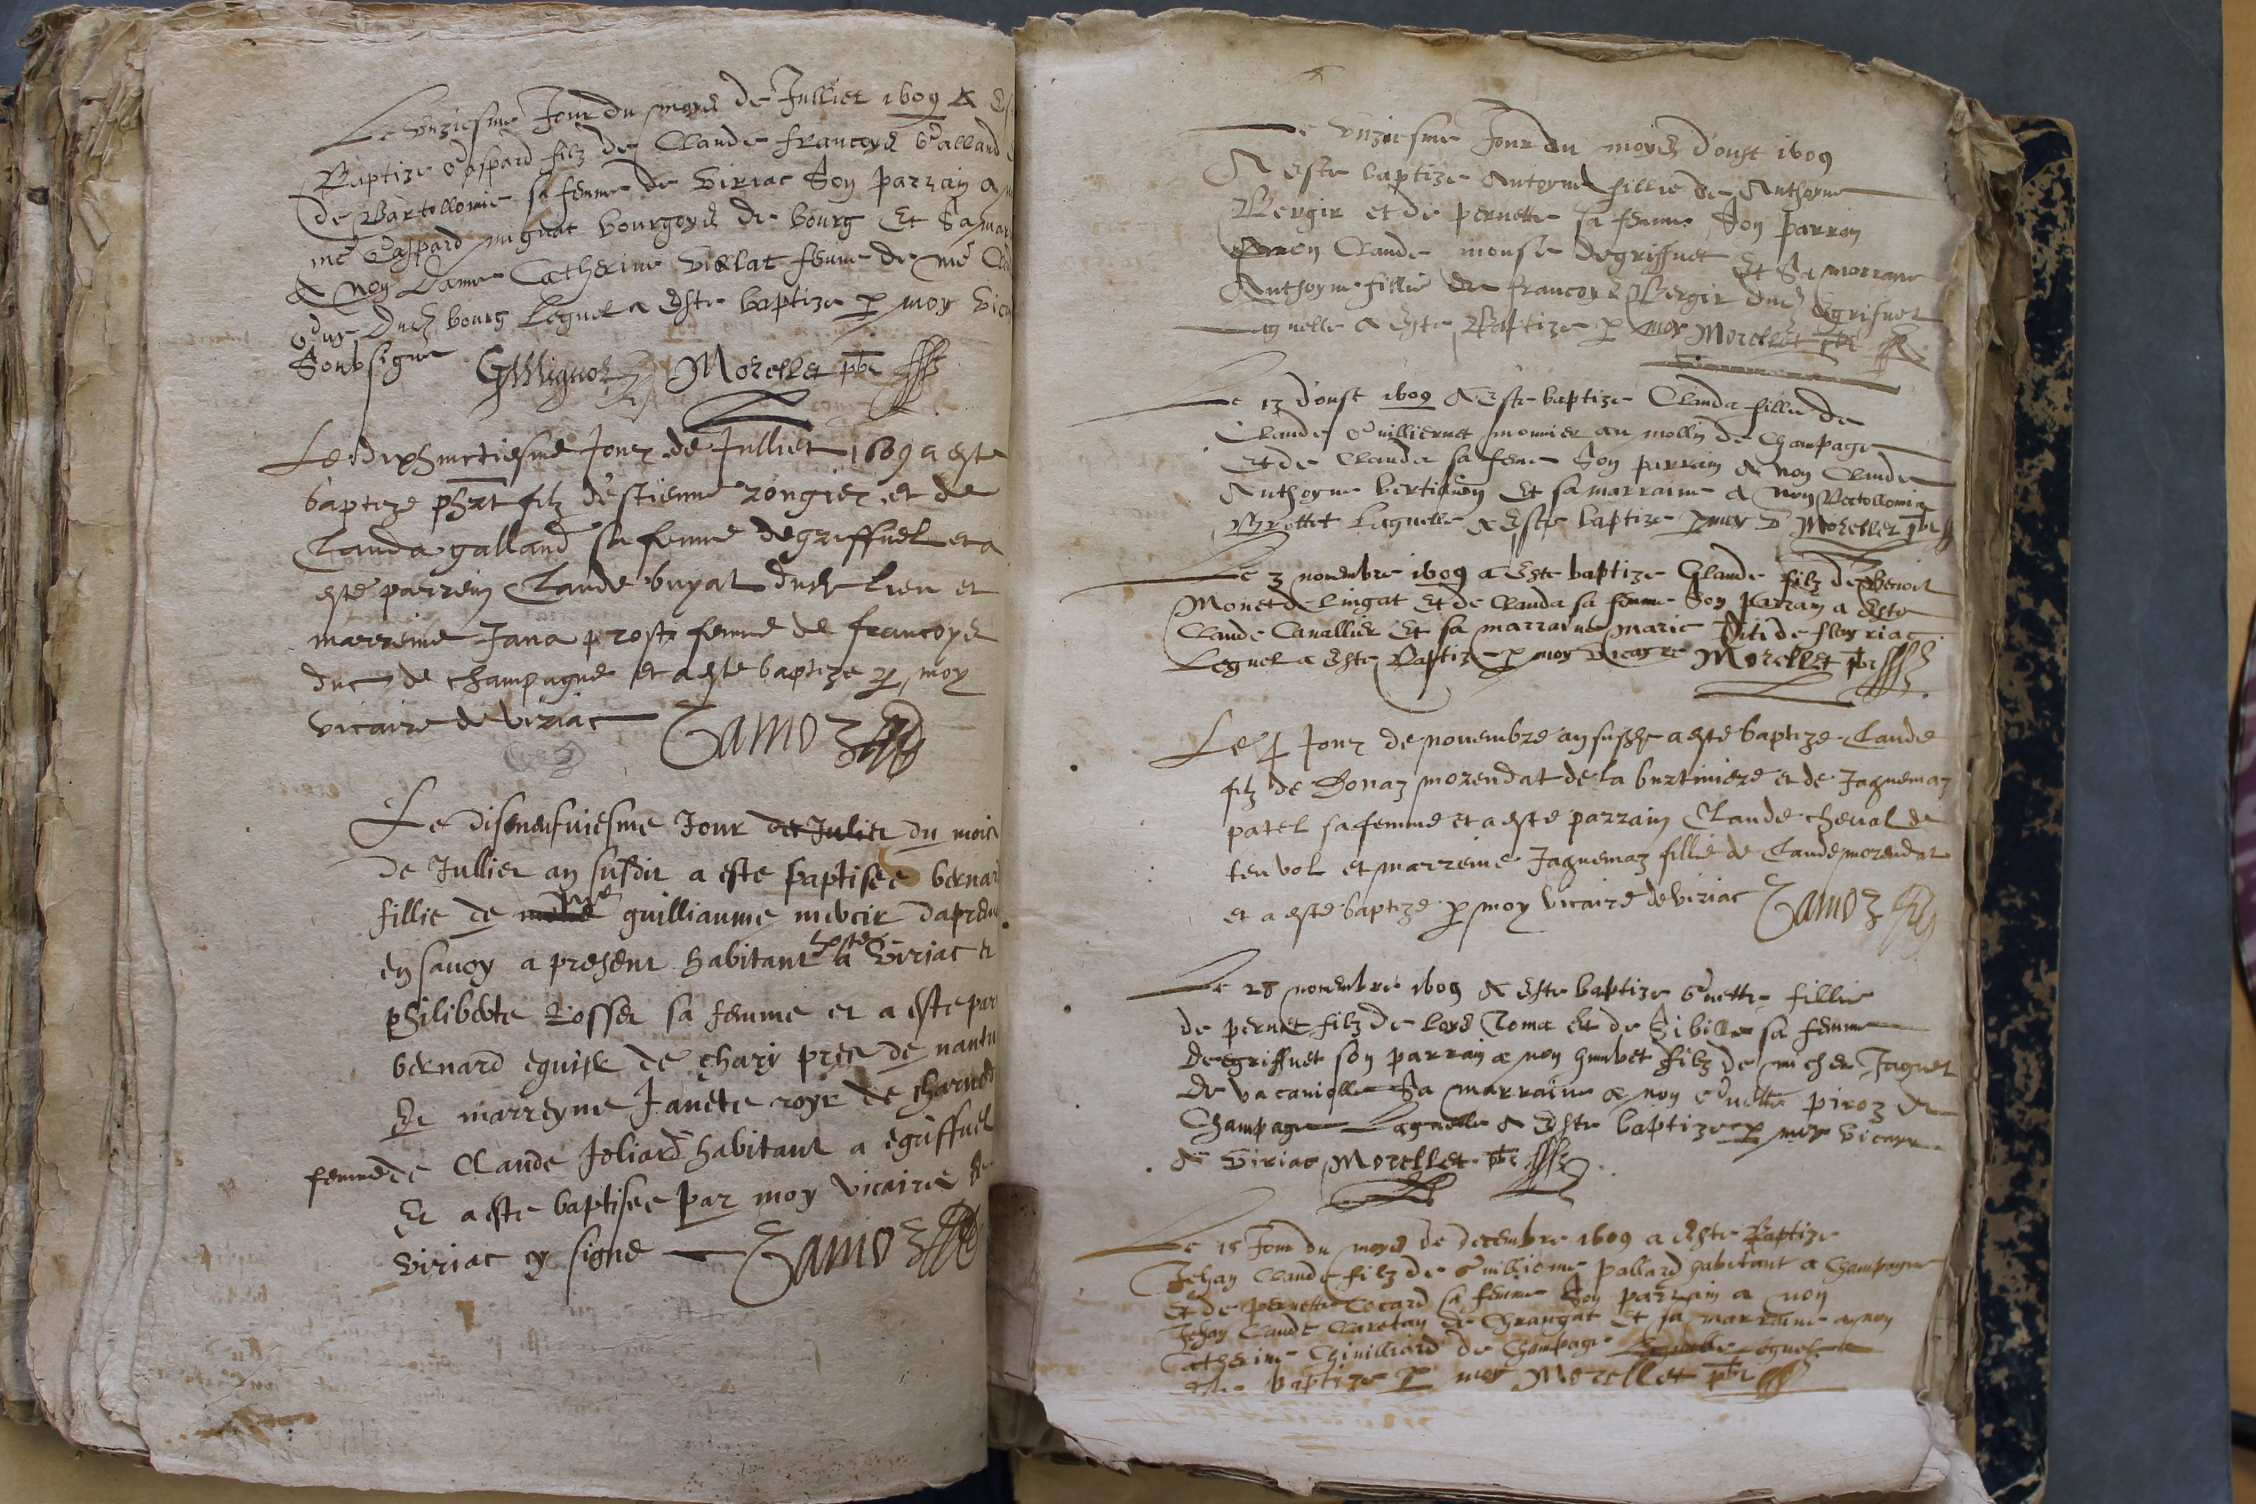 Le unziesme Jour du moys de Julliet 1609 A Es
Baptize Gaspard filz de Claude francoys Galland
de Bartollomie sa femme de Viriac Son parrain A
me Gaspard mignot bourgoys de bourg Et Sa mar
A Non Dame Catherine viellat femme de me
dud bourg Lequel a Este baptize p moy Vic
Soubsigne GMignot Morellet pbr
Le dixhuictiesme Jour de Julliet 1609 a este
baptize phbrt filz d'estienne rongier et de
Clauda galland sa femme degriffuel et a
este parrein Claude buyat dudt lieu et
marreine Jana prost femme de francoys
duc de champagne et a este baptize p moy
vicaire de viriac Camoz
Le disneufviesme Jour de Julier du mois
de Jullier an susdit a este baptisee bernar
fillie de me guilliaume mevoir
en savoy a present habitant a Viriac et
philiberte Rosset sa femme et a este par
bernard de chari pres de nantu
Et marreyne Janete roye de charne
femme de Claude Joliard habitant a egriffuel
Et a este baptisee par moy vicaire de
viriac cy signe Camoz
Le unziesme Jour du moys d'oust 1609
A este baptize Antoyne fillie de Anthoyne
Bergir et de pernette sa femme Son parrain
A non Claude degriffuet Et Sa marrane
Anthoyne fillie de francoys Bergir dud Egrifuet
Laquelle a Este Baptize p moy Morellet pbr
Le 13 d'oust 1609 A Este baptize Clauda fillie de
Claude Guilliermet monnier au mollin de Champagne
Et de Clauda sa feme Son parrain A non Claude
Anthoyne Et sa marraine A non Bartollomia
Brottet Laquelle A Este baptize p moy Morellet pbr
Le 3 novembre 1609 a Este baptize Glaude filz de Benoit
Monet de lingat Et de Clauda sa femme Son Parrain a Este
Claude Cavallier Et sa marraine Marie de fleyriac
Lequel a Este Baptize p moy vicayre Morellet pbr
Le Jour de novembre an susst a este baptize Claude
filz de Donaz morendat de la burtiniere et de Jaquemaz
patel sa femme et a este parrain Claude cheval de
tenvol et marreine Jaquemaz fillie de Claude morendat
et a este baptize p moy vicaire de viriac Camoz
Le 28 novembre 1609 A Este baptize fillie
de pernet filz de loys Roma Et de Sibille sa femme
degriffuet son parrain a non filz de Jaquet
de vacanioille Sa marraine a non piroz de
Champagne Laquelle A Este baptize p moy vicayre
de Viriac Morellet pbr
Le 15 Jour du moys de decembre 1609 a Este Baptize
Jehan Claude filz de Guilliame pallard habitant a Champagne
Et de pernette Cocard sa femme Son parrain a non
Jehan Claude Et sa marraine a non
Catherine de Champagne Lequel a
Este baptize p moy Morellet pbr